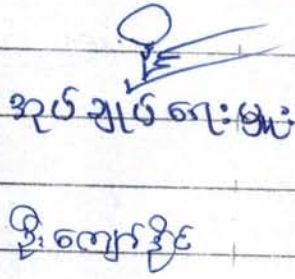 အုပ်ချုပ်ရေးမှူး
ဦးကျော်နိုင်